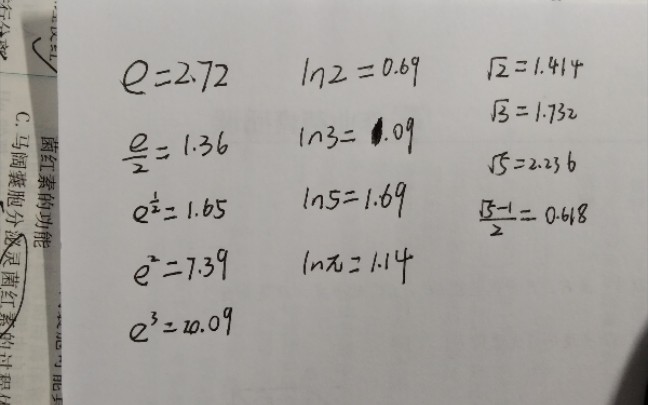 e=2.72
e/2=1.36
e^{1/2}=1.65
e²=7.39
e³=20.09
ln2=0.69
ln3=1.09
ln5=1.69
lnπ=1.14
√2=1.414
√3=1.732
√5=2.236
(√5-1)/2=0.618
菌红素的功能
C.马阔囊胞分泌灵菌红素的过程体